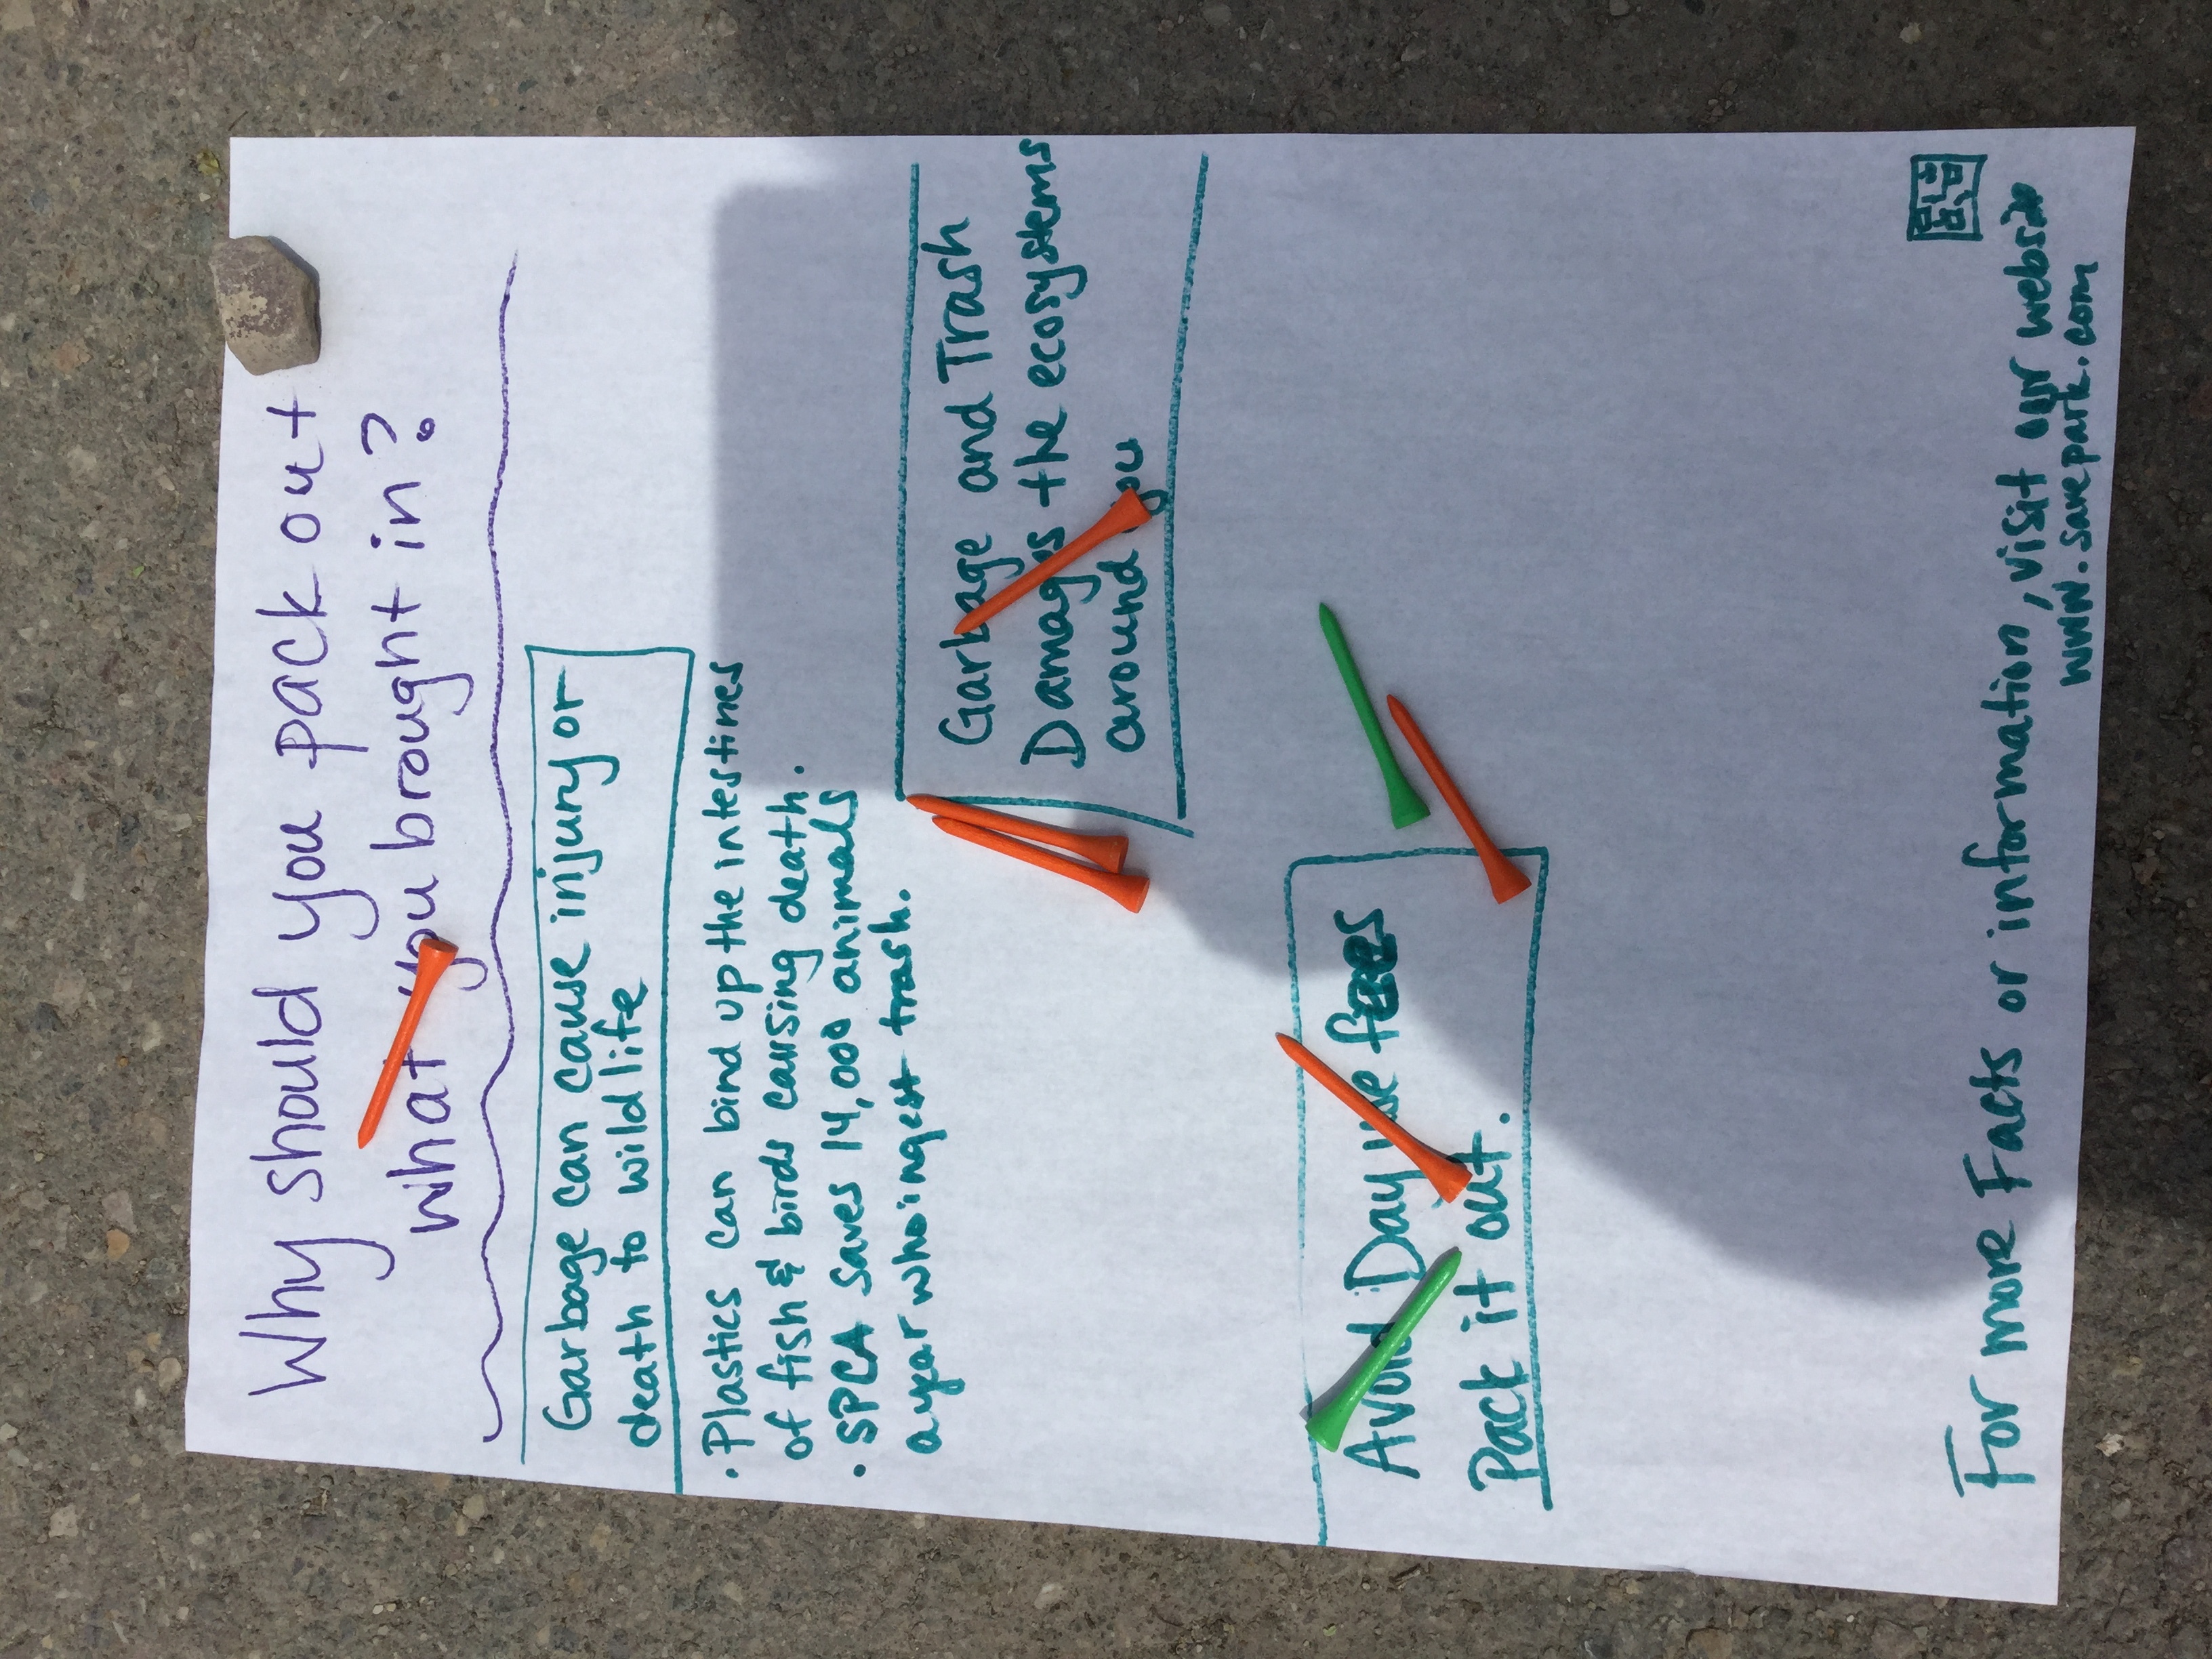 Why should you pack out
what you brought in?
Garbage can cause injury or
death to wild life
. Plastics can bind up the intestines
of fish & birds causing death.
. SPCA saves 14,000 animals
a year who ingest trash.
Garbage and Trash
Damages the ecosystems
around you
Avoid Day use fees
Pack it out.
For more Facts or information, visit our website
www.savepark.com